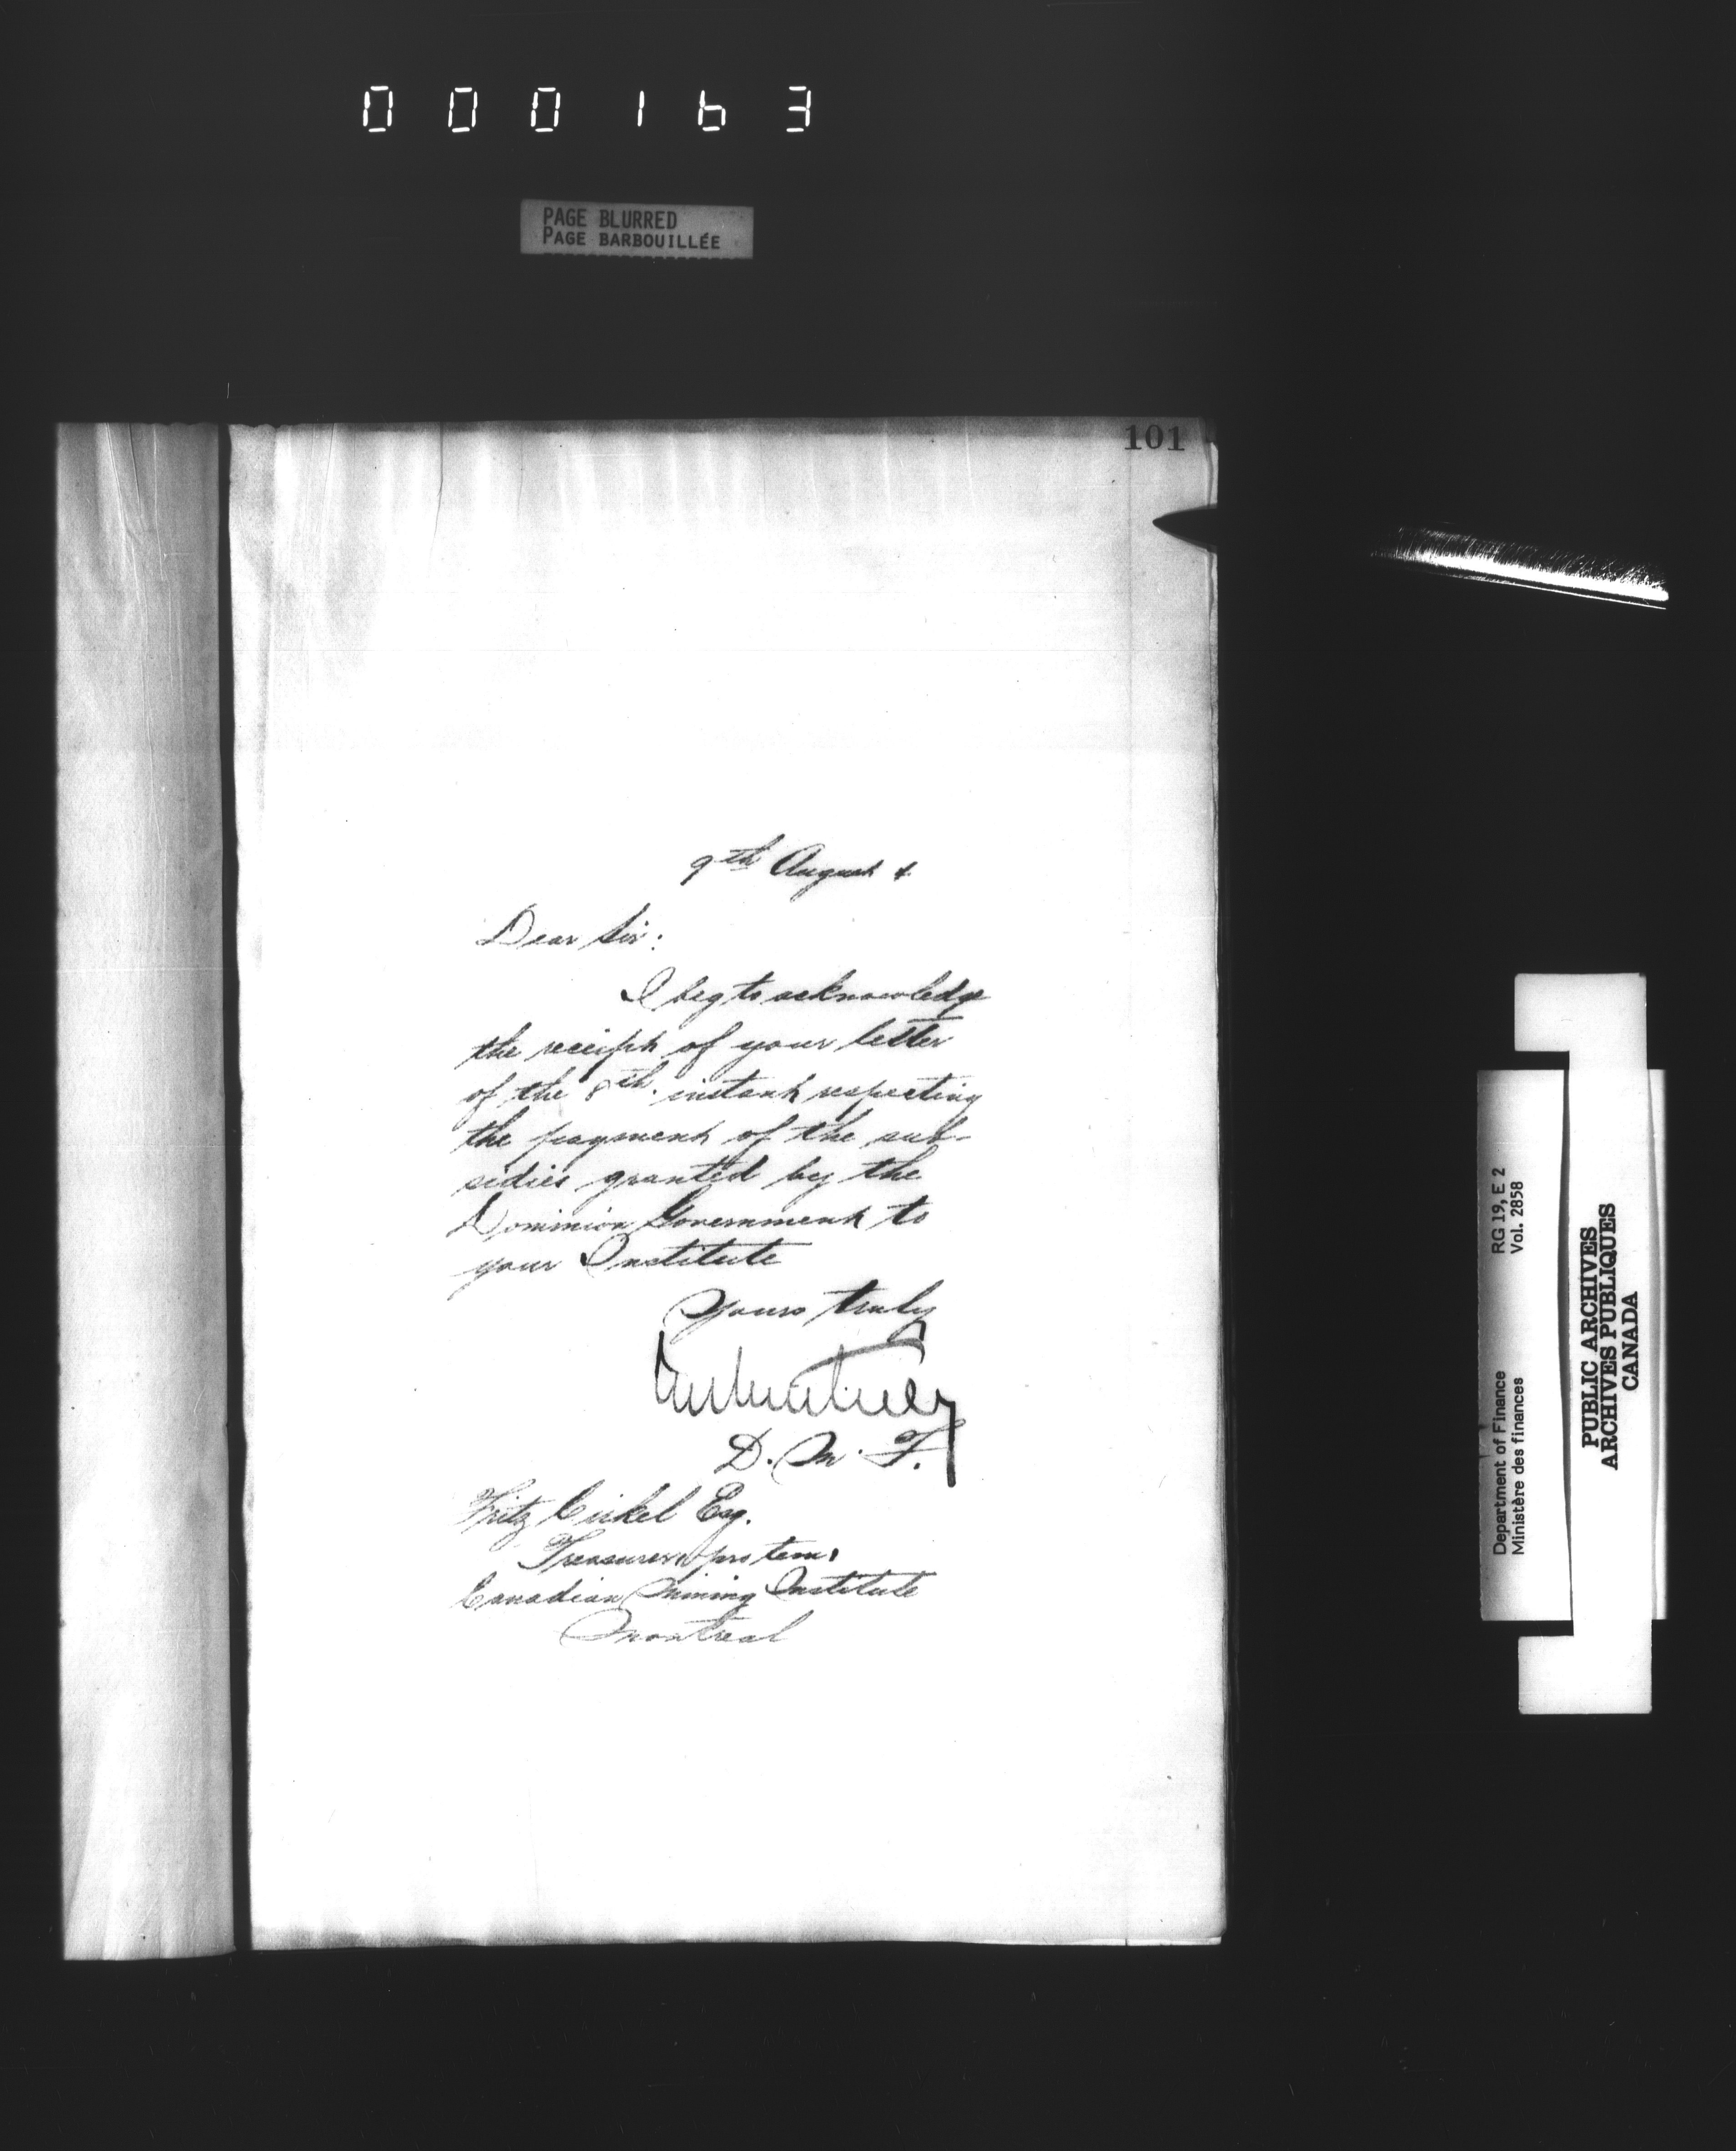 000163
PAGE BLURRED
PAGE BARBOUILLÉE
101
9th August 4.
Dear Sir:
I beg to acknowledge
the receipt of your letter
of the 8th. instant respecting
the payment of the sub-
sidies granted by the
Dominion Government to
your Institute
Yours truly
D. M. F.
Fritz Cirkel Esq.
Treasurer pro tem.
Canadian Mining Institute
Montreal
Department of Finance RG 19, E 2
Ministère des finances Vol. 2858
PUBLIC ARCHIVES
ARCHIVES PUBLIQUES
CANADA